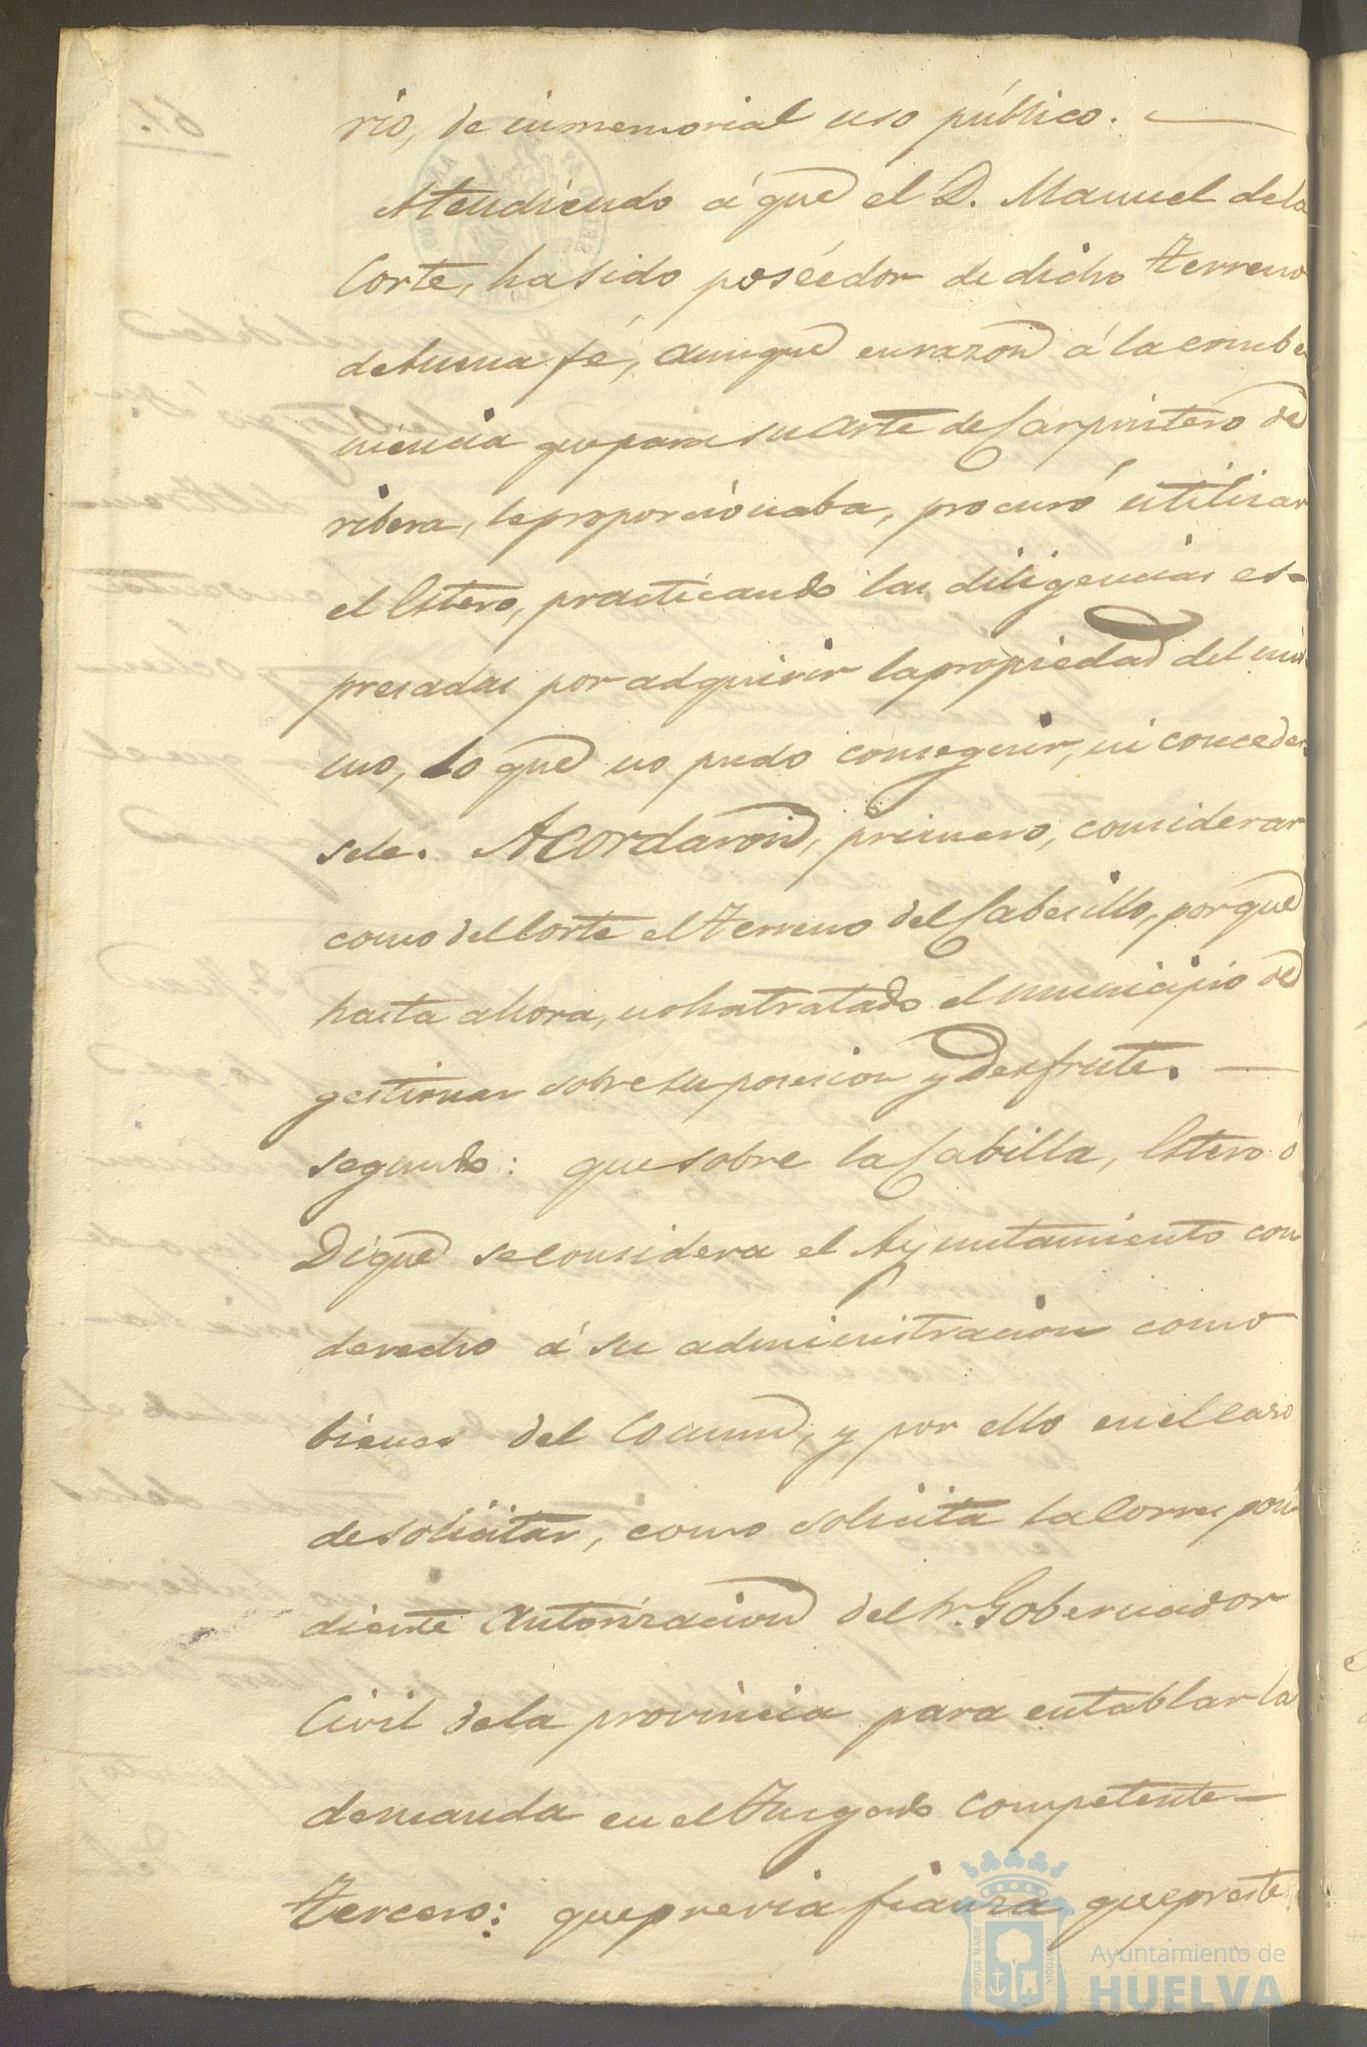 rio, de inmemorial uso público. —
Atendiendo á que el D. Manuel de la
Corte, ha sido poséedor de dicho terreno
de buena fé, aunque en razon á la combe
niencia que para su arte de Carpintero de
ribera, le proporcionaba, procuró utilizar
el Estero, practicando las diligencias es-
presadas por adquirir la propiedad del mis
mo, lo que no pudo conseguir, ni conceder
sele. Acordaron, primero, considerar
como del Corte el terreno del Cabesillo, porque
hasta ahora, no ha tratado el municipio de
gestionar sobre su posesion y desfrute. —
segundo: que sobre la Cabilla, Estero ó
Dique se considera el Ayuntamiento con
derecho á su administracion como
bienes del Comun, y por ello en el caso
de solicitar, como solicita la corres pon
diente autorizacion del Sr. Gobernador
Civil de la provincia para entablar la
demanda en el Juzgado competente —
tercero: que previa fianza que preste
Ayuntamiento de
HUELVA